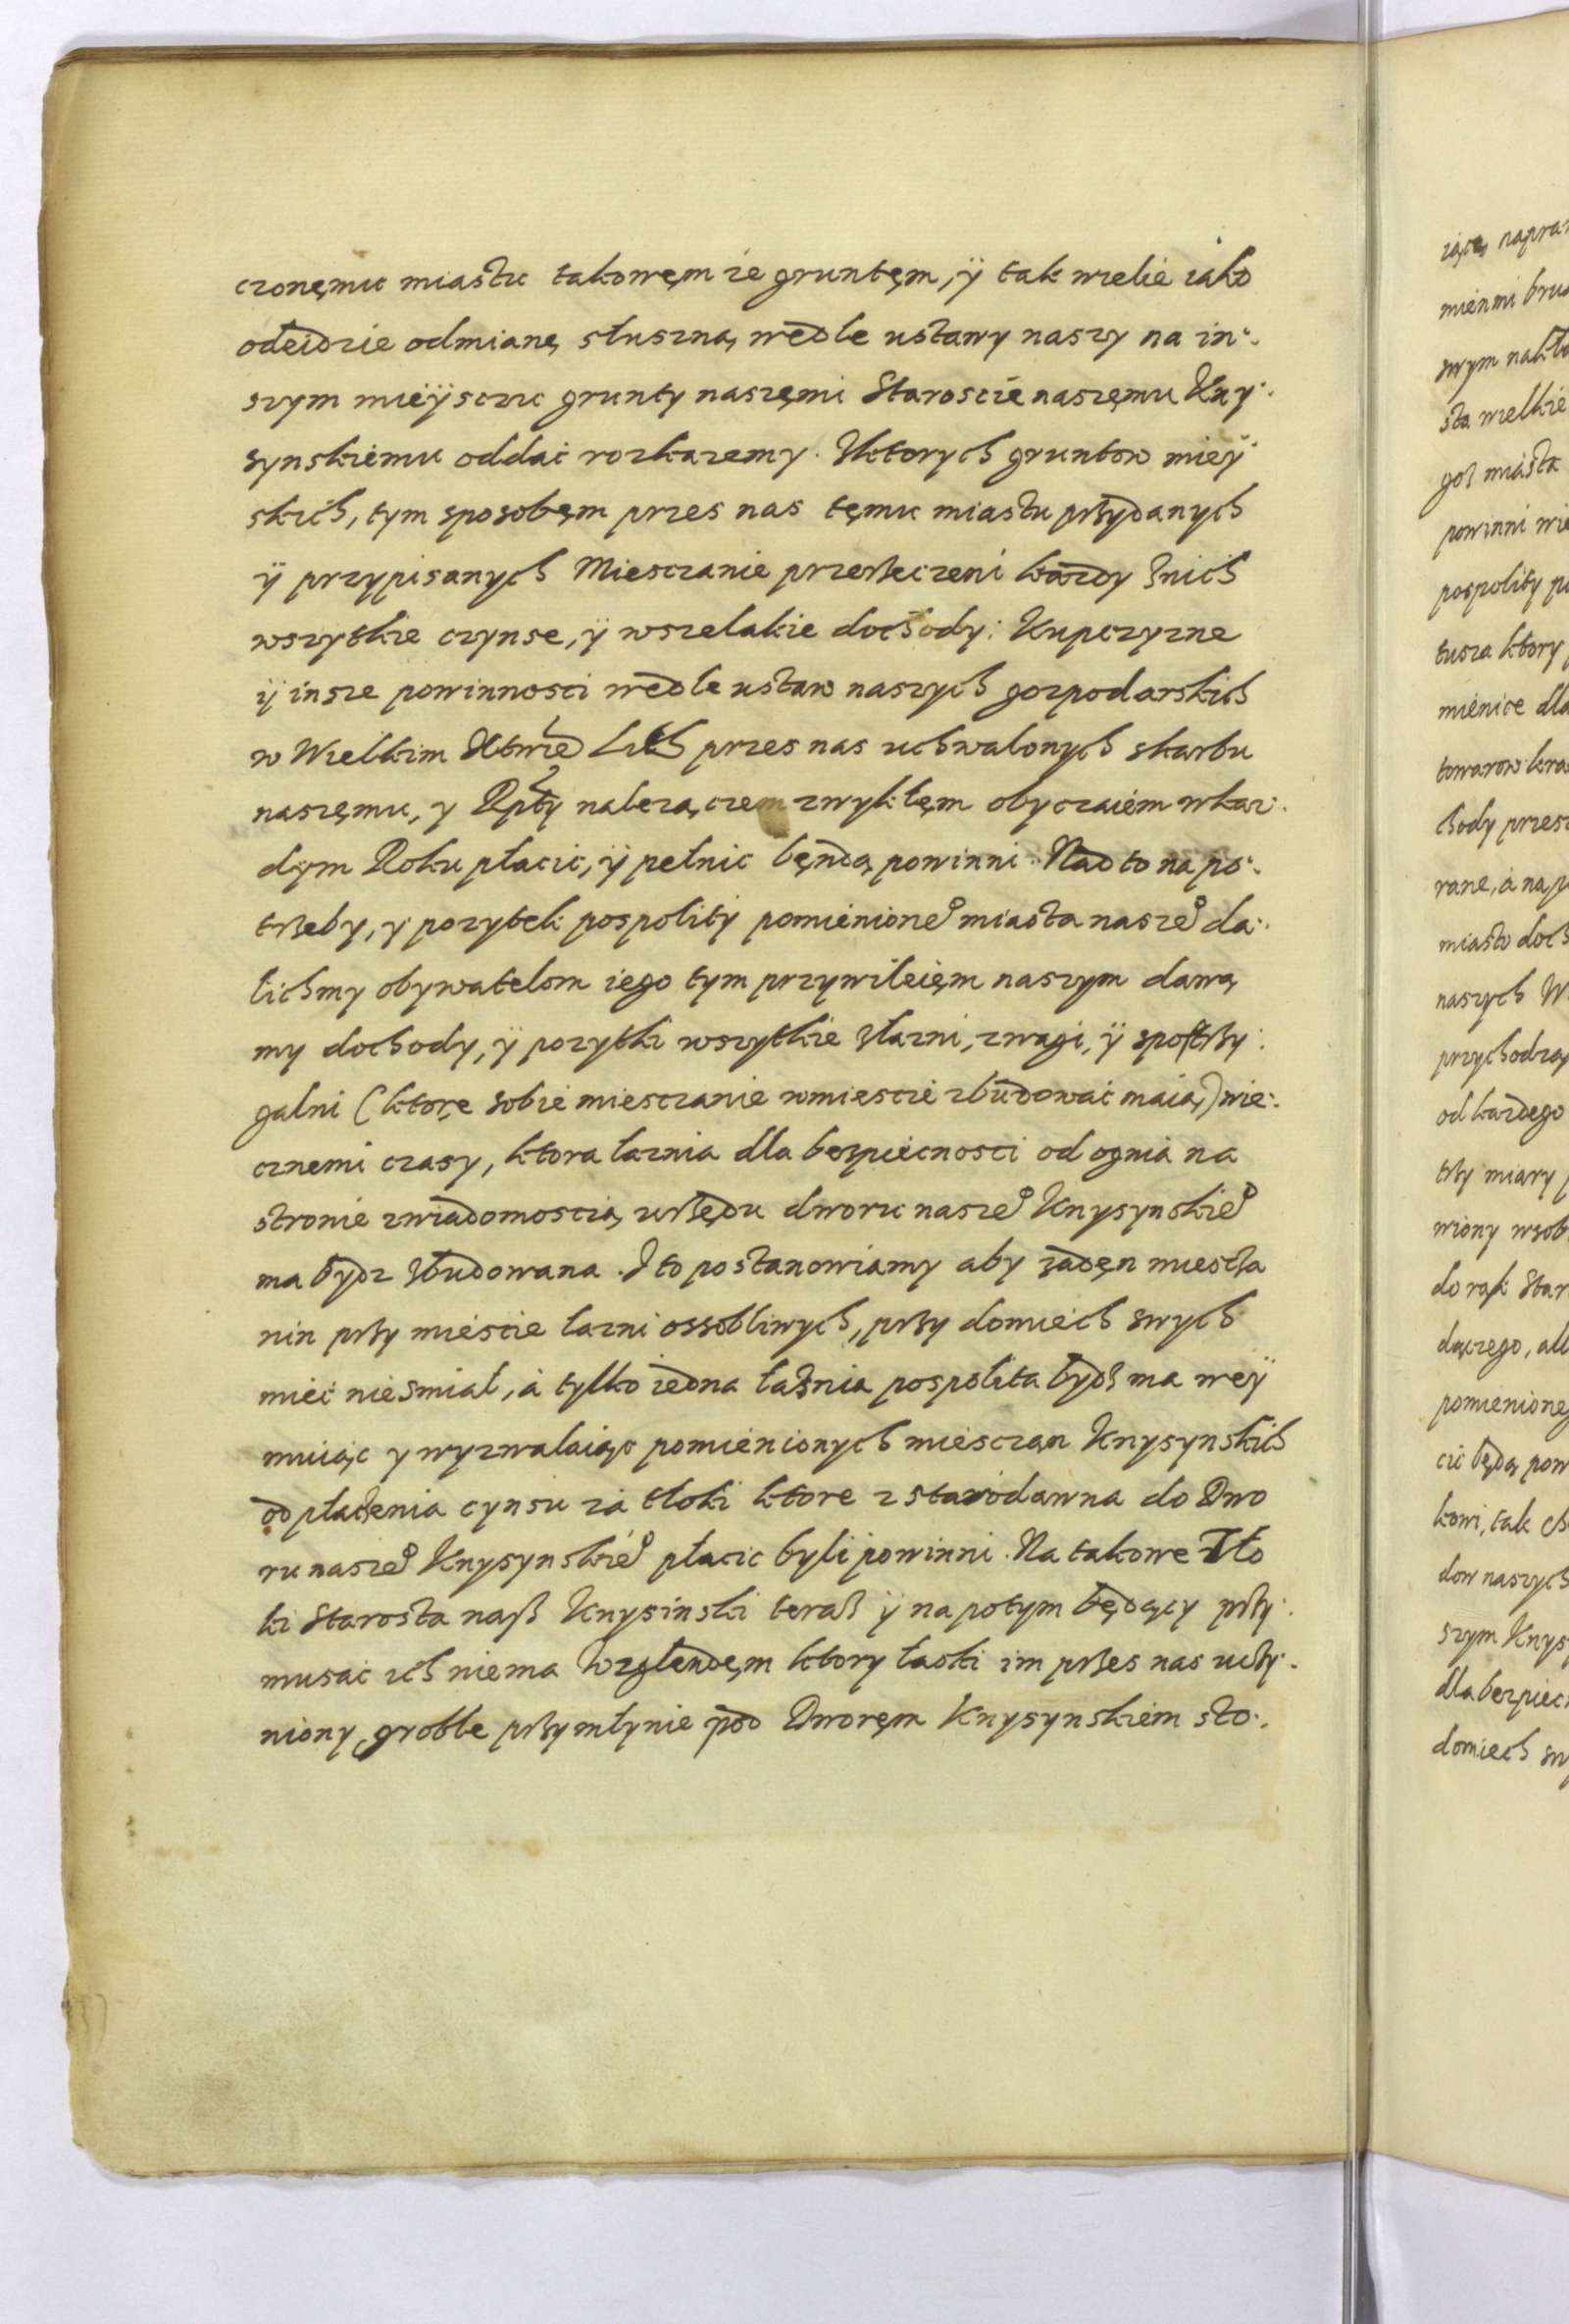 czonęmu miastu takowęm ze gruntęm, ÿ tak wielie iako
odeidzie odmianę słuszną, wedle ustawy naszy na in-
szym mieÿsczu grunty naszęmi Staroscie naszęmu Kny-
synskiemu oddać rozkazemy. Zktorych gruntow mieÿ
skich, tym sposobęm przes nas tęmu miastu prżydanych
ÿ przypisanych Miesczanie przerżeczeni każdy żnich
wszytkie czynse, ÿ wszelakie dochody: Kupczyzne
ÿ insze powinnosci wedle ustaw naszych gospodarskich
w Wielkim Xtwie Lith przes nas uchwalonych skarbu
naszęmu, y Rpltÿ nalezączem zwykłęm obyczaiem wkaz-
dym Roku płacic, ÿ pełnic bęndą powinni. Nad to na po-
trżeby, y pozytek pospolity pomienione° miasta nasze° da-
lichmy obywatelom iego tym przywileięm naszym dawa
my dochody, ÿ pozytki wszytkie żłazni, zwagi, ÿ spostrży-
galni (ktorę sobie miesczanie wmiescie zbudować maią,) wie-
cznemi czasy, ktora łaznia dla bespiecnosci od ognia na
stronie zwiadomoscią urżędu dworu nasze° Knysynskie°
ma bydz żbudowana. I to postanowiamy aby żadęn miescża
nin prży miescie łazni ossobliwych, prży domiech swych
mieć niesmiał, á tylko iedna łażnia pospolita bydż ma weÿ
muiąc y wyzwalaiąc pomienionych miesczan Knysynskich
od płacżenia cynsu zá tłoki ktore z starodawna do Dwo
ru nasze° Knysynskie° płacic byli powinni. Na takowe Tło
ki Starosta naß Knysinski teraß ÿ na potym będący prży-
musać ich niema wzglendęm ktory łaski im prżes nas uczy-
niony, groble prżymłynie pod Dworęm Knysynskiem sto-
ziącą napra
mienmi bru
swym nakła
sta wielkie
goż miasta
powinni wie
pospolity po
tusza ktory
mienice dla
towarow kra
chody przes
rane, á na p
miasto doch
naszych W
przychodzą
od każdego
trży miary p
wiony wsob
do rąk Star
dączego, alb
pomienione
cić będą pow
kowi, tak ch
dow naszych
szym Knys
dla bezpiec
domiech sw